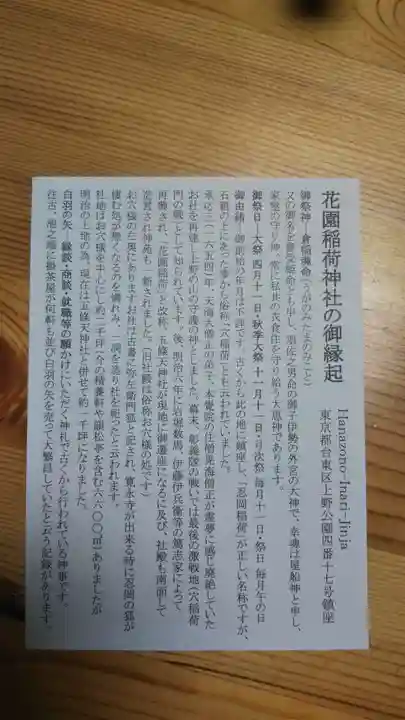 花園稲荷神社の御縁起
Hanazono-Inari-Jinja
東京都台東区上野公園四番十七号鎮座
御祭神―倉稲魂命(うがのみたまのみこと)
又の御名を豊受姫命とも申し、須佐之男命の御子伊勢の外宮の大神で、幸魂は屋船神と申し、
家屋の守り神、常に私共の衣食住を守り給う大恩神であります。
御祭日―大祭 四月十一日・秋季大祭 十一月十一日・月次祭 毎月十一日・祭日 毎月午の日
御由緒―御創祀の年月は不詳です。古くから此の地に鎮座し、「忍岡稲荷」が正しい名称ですが、
石窟の上にあった事から俗称「穴稲荷」とも云われていました。
承応三(一六五四)年、天海大僧正の弟子、本覚院の住僧晃海僧正が霊夢に感じ廃絶していた
お社を再建し上野の山の守護の神としました。幕末、彰義隊の戦いでは最後の激戦地(穴稲荷
門の戦)として知られています。後、明治六年に岩堀数馬、伊藤伊兵衛等の篤志家によって
再興され、「花園稲荷」と改称、五條天神社が現地に御遷座になるに及び、社殿も南面して
造営され神苑も一新されました。(旧社殿は俗称お穴様の処です)
お穴様の左奥にありますお社は古書に弥左衛門狐と記され、寛永寺が出来る時に忍岡の狐が
棲む処が無くなるのを憐れみ、一洞を造り社を祀ったと云われます。
社地はお穴様を中心にし約二千坪(今の精養軒や韻松亭を含む六六〇〇㎡)ありましたが
明治の上地の為、現在は五條天神社と併せて約一千坪になりました。
白羽の矢―縁談・商談・就職等の願かけにいただく神札で古くから行われている神事です。
往古、池之端に掛茶屋が何軒も並び白羽の矢を売って大繁昌していたと云う記録があります。